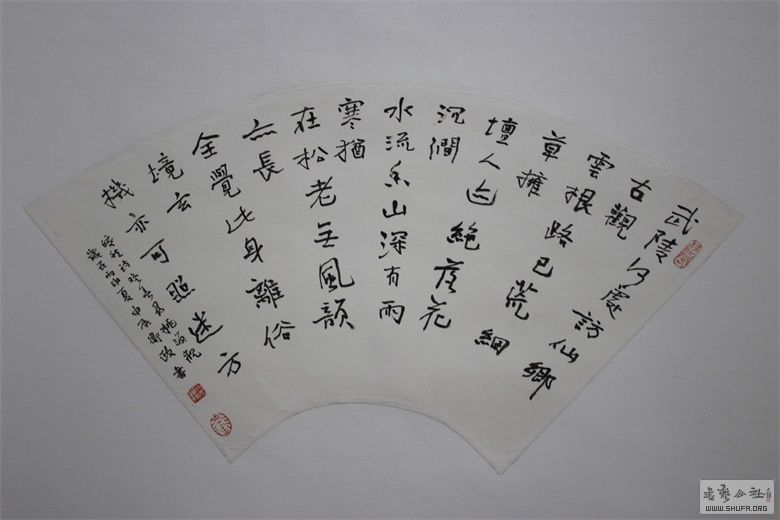 武陵何處訪仙鄉
古觀
雲根路已荒細
草擁
壇人迹絕落花
沉澗
水流香山深有雨
寒猶
在松老无風韻
亦長
全覺此身離俗
境玄
機亦可照迷方
歲在丙申夏
書
公社
WWW.SHUFA.ORG